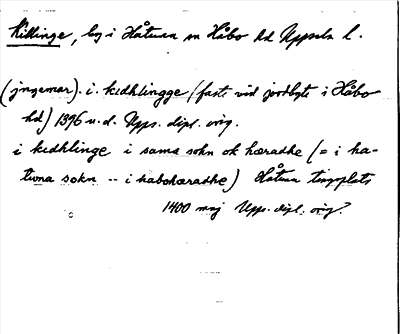 Killinge, by i Håtuna sn Håbo hd Uppsala l.
(jngemar). i. kidhlingge (faste vid jordbyte i Håbo
hd) 1396 u.d. Upps. dipl. orig.
i kidhlinge i sama sokn ok hæradhe (= i ha-
tuna sokn -- i habohæradhe) Håtuna tingsplats
1400 maj Upps. dipl. orig.